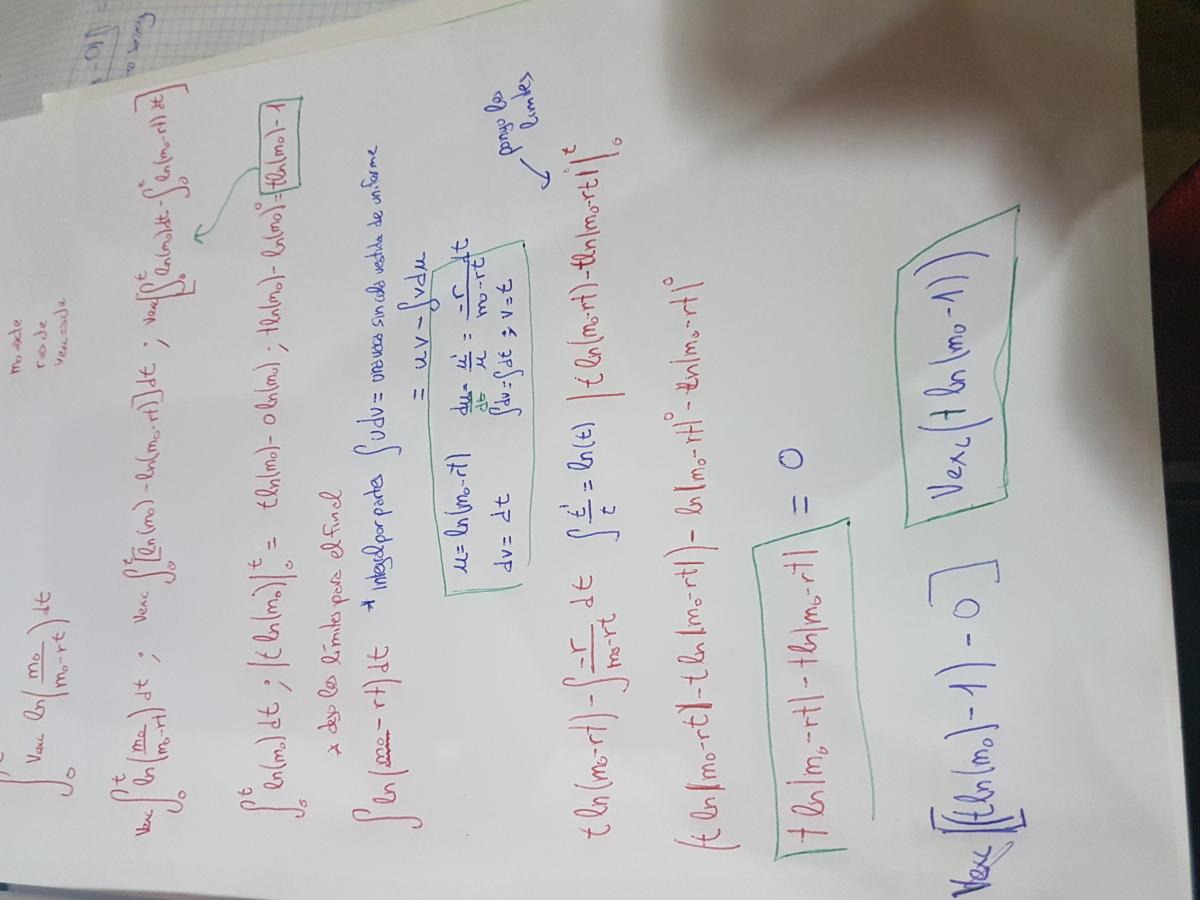 m₀=cte
r=cte
vexc=cte
∫₀ᵗ vexc ln(m₀/(m₀-rt)) dt
vexc ∫₀ᵗ ln(m₀/(m₀-rt)) dt ; vexc ∫₀ᵗ [ln(m₀) - ln(m₀-rt)] dt ; vexc[∫₀ᵗ ln(m₀)dt - ∫₀ᵗ ln(m₀-rt) dt]
∫₀ᵗ ln(m₀) dt ; |t ln(m₀)|₀ᵗ = t ln(m₀) - 0 ln(m₀) ; t ln(m₀) - ln(m₀)⁰ = t ln(m₀) - 1
* dejo los límites para el final
∫ ln(m₀ - rt) dt * integral por partes ∫ u dv = una vaca sin cola vestida de uniforme
= uv - ∫ v du
u = ln(m₀-rt) du/dt = u'/u = -r/(m₀-rt) dt
dv = dt ∫dv = ∫dt ; v = t
pongo los límites
t ln(m₀-rt) - ∫ -r/(m₀-rt) dt ∫ t'/t = ln(t) |t ln(m₀-rt) - t ln|m₀-rt||₀ᵗ
(t ln|m₀-rt| - t ln|m₀-rt|) - ln|m₀-rt|⁰ - ln|m₀-rt|⁰
t ln|m₀-rt| - t ln|m₀-rt| = 0
Vexc [(t ln(m₀) - 1) - 0] Vexc (t ln(m₀-1))